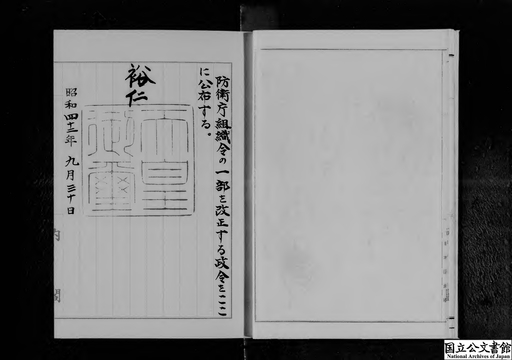 防衛庁組織令の一部を改正する政令をここ
に公布する。
裕仁
天皇
御璽
昭和四十三年九月三十日
内閣
国立公文書館
National Archives of Japan